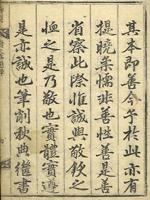 其本即善今予於此亦有
提曉柔懦非善性善是善
省察此際惟誠與敬欽之
恤之是乃敬也實體實踐
是亦誠也筆削秋典繼書